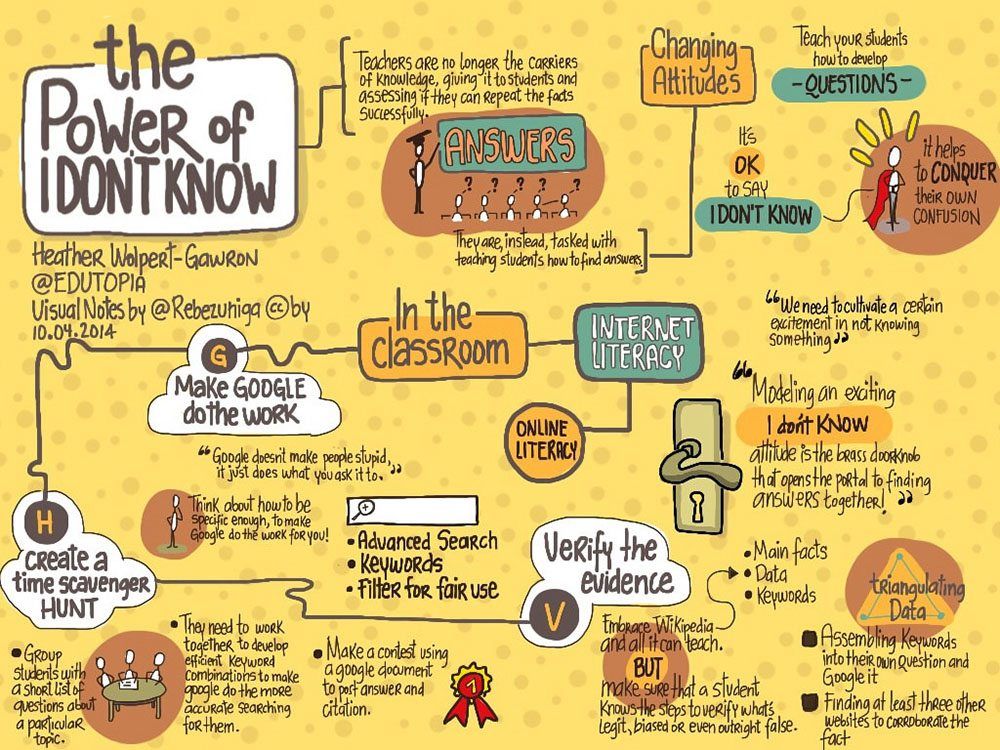 the
Power of
I DON'T KNOW
Heather Wolpert-Gawron
@EDUTOPIA
Visual Notes by @Rebezuniga cc by
10.04.2014
Teachers are no longer the carriers
of knowledge, giving it to students and
assessing if they can repeat the facts
successfully.
ANSWERS
? ? ? ? ?
They are, instead, tasked with
teaching students how to find answers.
Changing
Attitudes
Teach your students
how to develop
- QUESTIONS -
It's
OK
to SAY
I DON'T KNOW
it helps
to CONQUER
their OWN
CONFUSION
In the
classroom
INTERNET
LITERACY
ONLINE
LITERACY
"We need to cultivate a certain
excitement in not knowing
something"
"Modeling an exciting
I don't KNOW
attitude is the brass doorknob
that opens the portal to finding
ANSWERS together!"
G
Make GOOGLE
do the work
"Google doesn't make people stupid,
it just does what you ask it to."
Think about how to be
specific enough, to make
Google do the work for you!
• Advanced Search
• Keywords
• Filter for fair use
H
create a
time scavenger
HUNT
• Group
students with
a short list of
questions about
a particular
topic.
• They need to work
together to develop
efficient keyword
combinations to make
google do the more
accurate searching
for them.
• Make a contest using
a google document
to post answer and
citation.
1
Verify the
evidence
V
• Main facts
• Data
• Keywords
Embrace Wikipedia
and all it can teach.
BUT
make sure that a student
knows the steps to verify what's
legit, biased or even outright false.
triangulating
Data
Assembling Keywords
into their own Question and
Google it
Finding at least three other
websites to corroborate the
fact